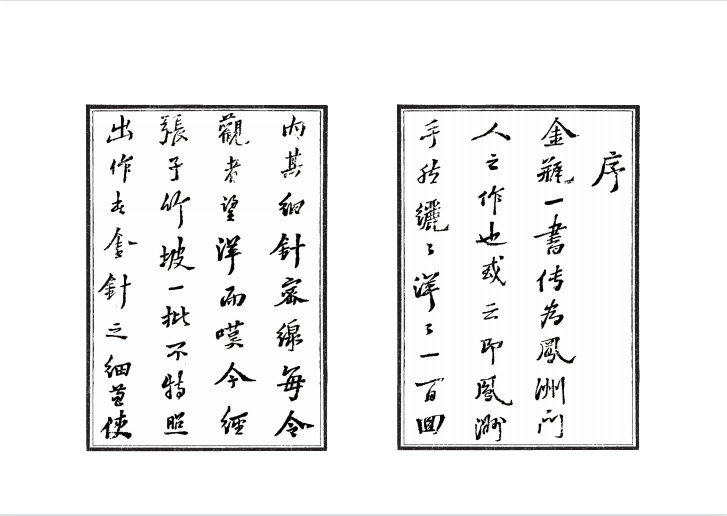 序
金瓶一書傳為鳳洲门
人之作也或云即鳳洲
手然纚〻洋〻一百回
内其細針密線每令
觀者望洋而嘆今經
張子竹坡一批不特照
出作者金針之細兼使